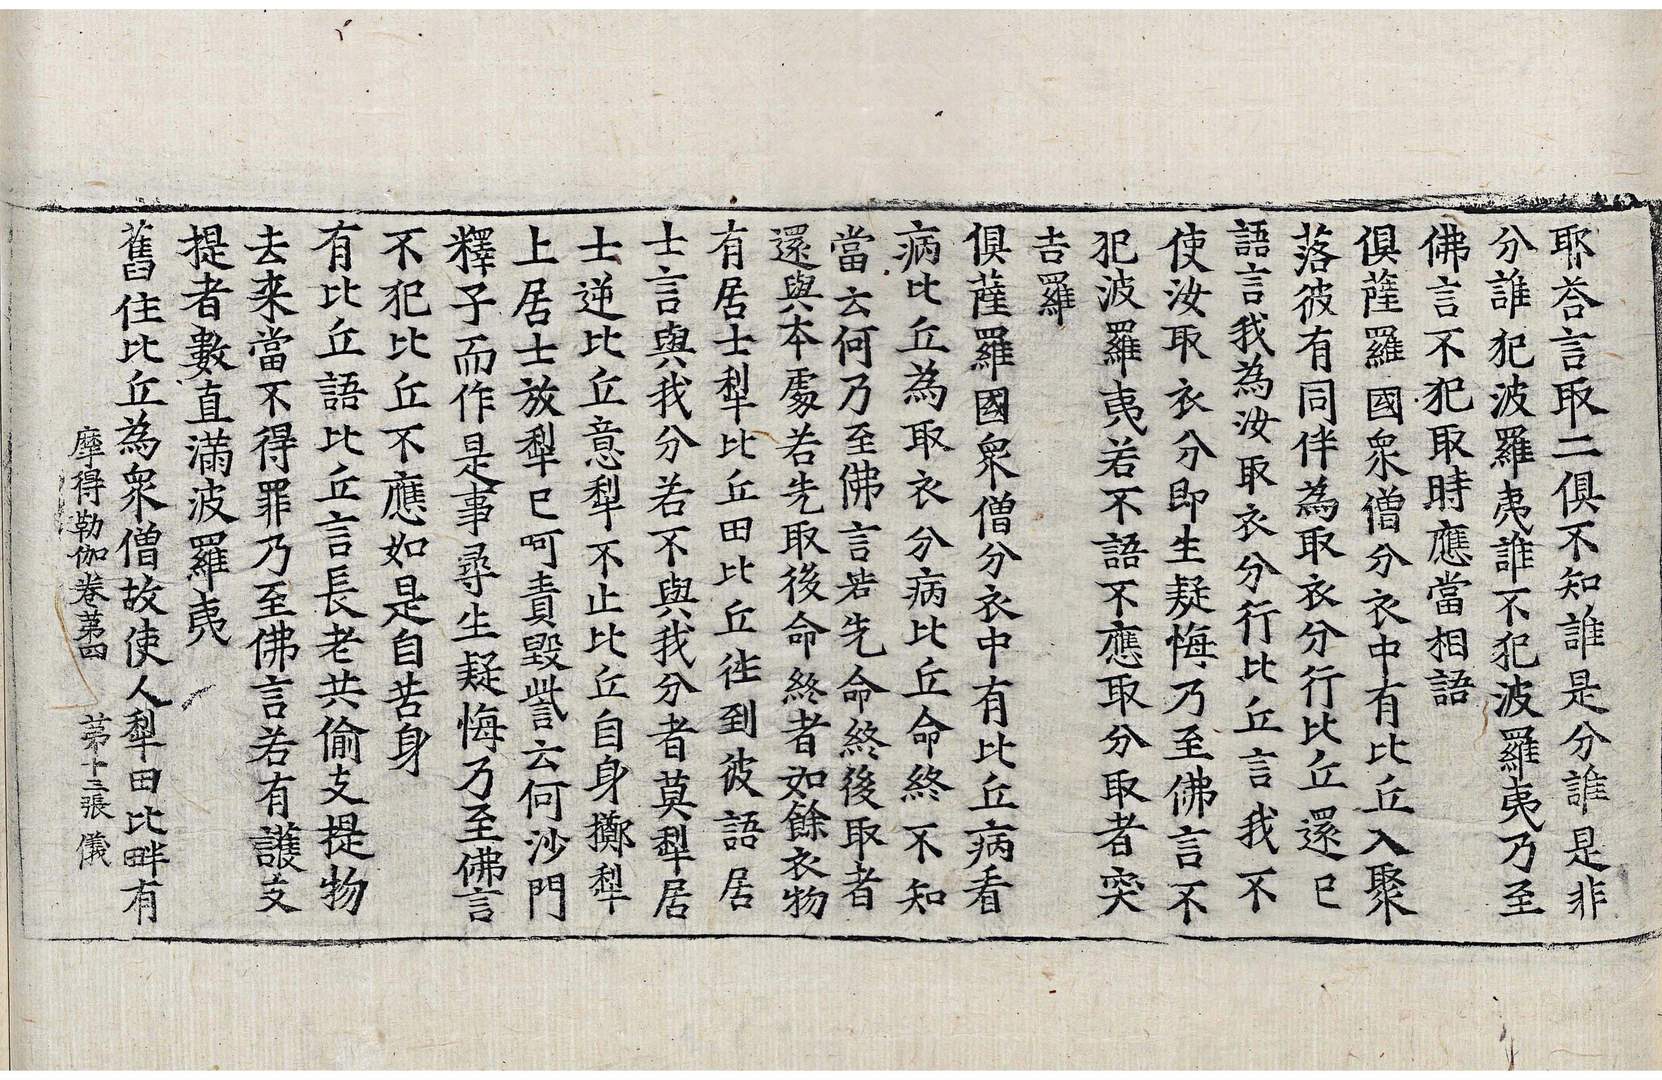 耶荅言取二俱不知誰是分誰是非
分誰犯波羅夷誰不犯波羅夷乃至
佛言不犯取時應當相語
俱薩羅國衆僧分衣中有比丘入聚
落彼有同伴為取衣分行比丘還已
語言我為汝取衣分行比丘言我不
使汝取衣分即生疑悔乃至佛言不
犯波羅夷若不語不應取分取者突
吉羅
俱薩羅國衆僧分衣中有比丘病看
病比丘為取衣分病比丘命終不知
當云何乃至佛言若先命終後取者
還與本處若先取後命終者如餘衣物
有居士犁比丘田比丘往到彼語居
士言與我分若不與我分者莫犁居
士逆比丘意犁不止比丘自身擲犁
上居士放犁已呵責毀呰言云何沙門
釋子而作是事尋生疑悔乃至佛言
不犯比丘不應如是自苦身
有比丘語比丘言長老共偷支提物
去来當不得罪乃至佛言若有護支
提者數直滿波羅夷
舊住比丘為衆僧故使人犁田比畔有
摩得勒伽卷第四 第十三張 儀